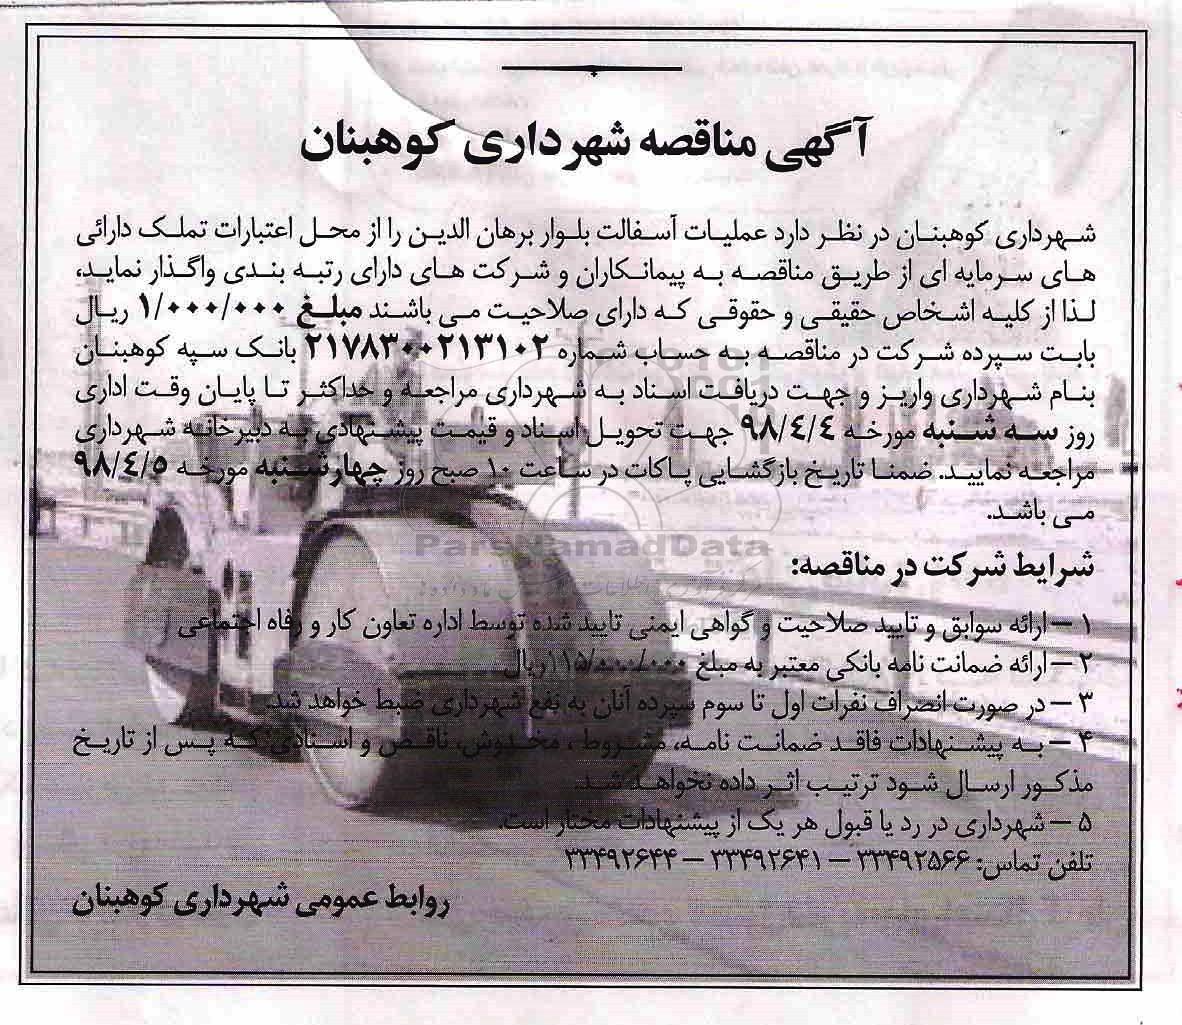 آگهی مناقصه شهرداری کوهبنان
شهرداری کوهبنان در نظر دارد عملیات آسفالت بلوار برهان الدین را از محل اعتبارات تملک دارائی
های سرمایه ای از طریق مناقصه به پیمانکاران و شرکت های دارای رتبه بندی واگذار نماید،
لذا از کلیه اشخاص حقیقی و حقوقی که دارای صلاحیت می باشند مبلغ ۱/۰۰۰/۰۰۰ ریال
بابت سپرده شرکت در مناقصه به حساب شماره ۲۱۷۸۳۰۰۲۱۳۱۰۲ بانک سپه کوهبنان
بنام شهرداری واریز و جهت دریافت اسناد به شهرداری مراجعه و حداکثر تا پایان وقت اداری
روز سه شنبه مورخه ۹۸/٤/٤ جهت تحویل اسناد و قیمت پیشنهادی به دبیرخانه شهرداری
مراجعه نمایید. ضمنا تاریخ بازگشایی پاکات در ساعت ۱۰ صبح روز چهارشنبه مورخه ۹۸/٤/۵
می باشد.
ParsNamadData
شرایط شرکت در مناقصه:
۱ – ارائه سوابق و تایید صلاحیت و گواهی ایمنی تایید شده توسط اداره تعاون کار و رفاه اجتماعی
۲ – ارائه ضمانت نامه بانکی معتبر به مبلغ ۱۱۵/۰۰۰/۰۰۰ریال
۳ – در صورت انصراف نفرات اول تا سوم سپرده آنان به نفع شهرداری ضبط خواهد شد.
۴ – به پیشنهادات فاقد ضمانت نامه، مشروط ، مخدوش، ناقص و اسنادی که پس از تاریخ
مذکور ارسال شود ترتیب اثر داده نخواهد شد.
۵ – شهرداری در رد یا قبول هر یک از پیشنهادات مختار است.
تلفن تماس: ۳۳۴۹۲۵۶۶ – ۳۳۴۹۲۶۴۱ – ۳۳۴۹۲۶۴۴
روابط عمومی شهرداری کوهبنان